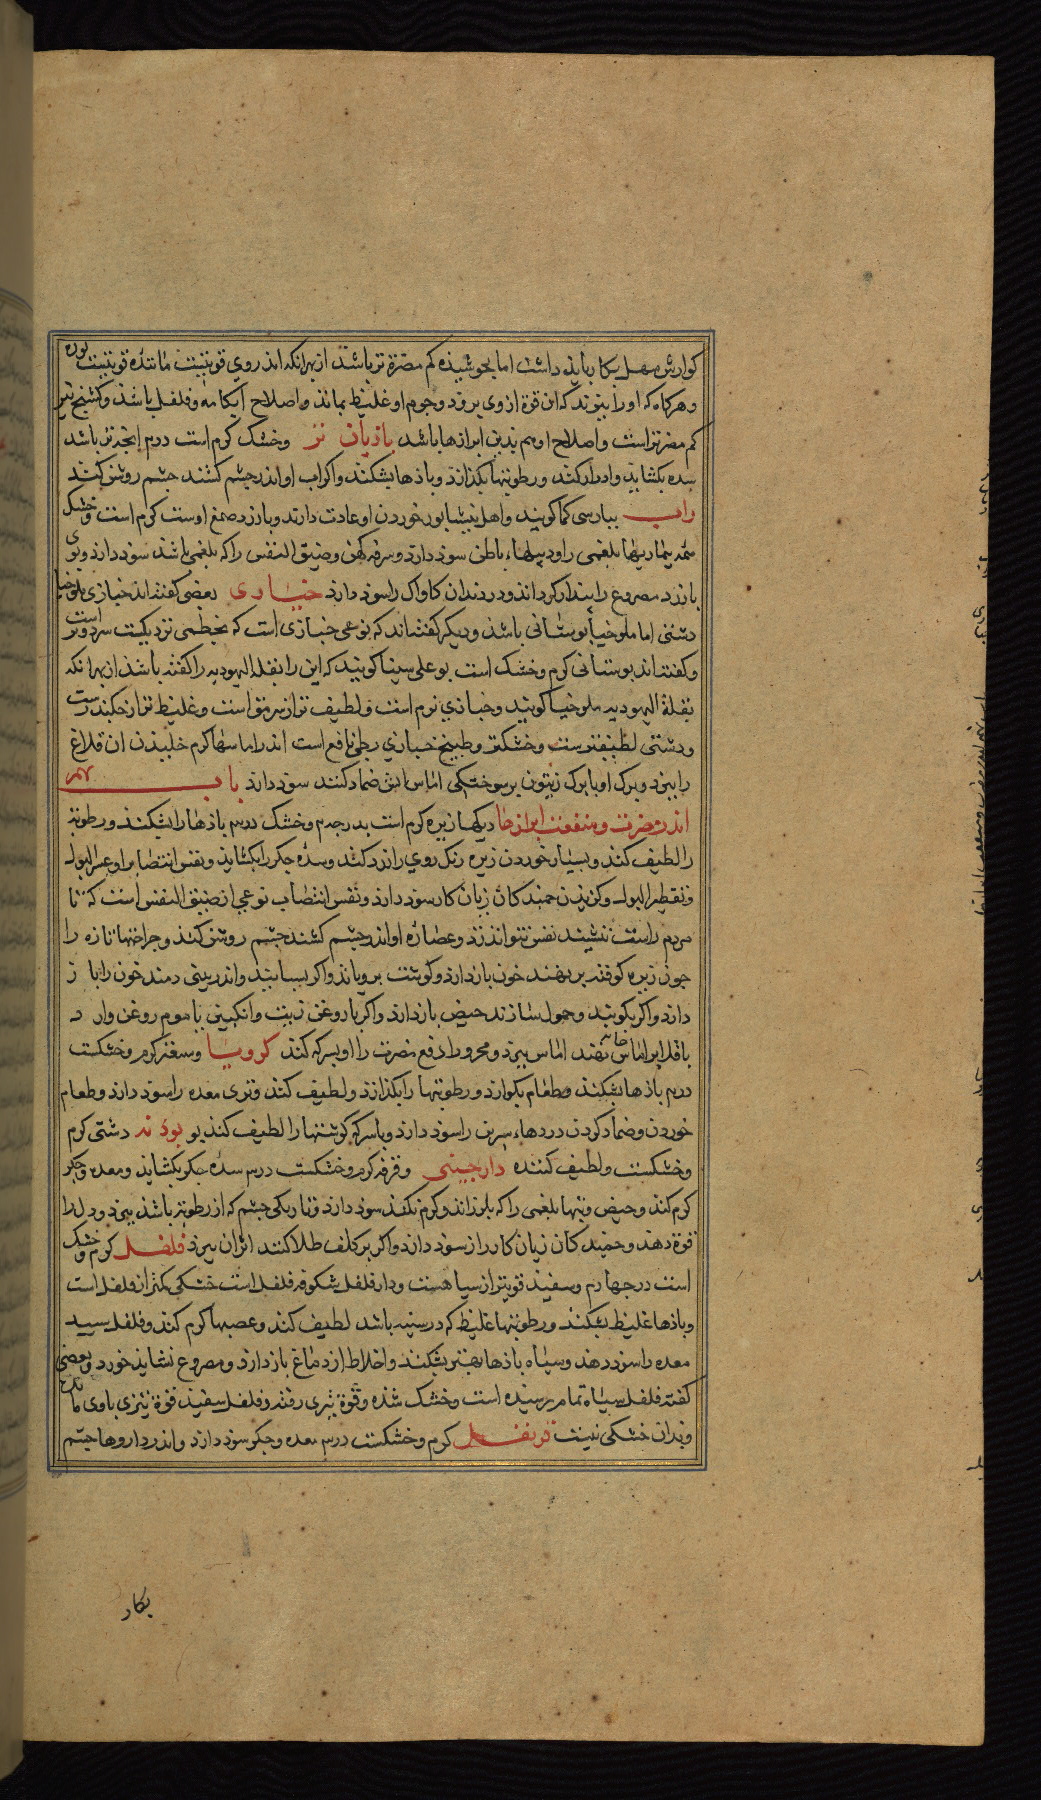 کوارش مسهل بکار باید داشت اما بجوشیده کم مضرة تر باشد از بهر انکه اندر وی قوتیست ماننده قوتیست بوره
وهرکاه که او را ببزند که ان قوة از وی برود وجرم او غلیظ بماند واصلاح ابکامه وفلفل باشد وکشنیج تر
کم مضرتر است واصلاح او هم بدین ابزارها باشد بادیان تر وخشک کرم است درم
سده بکشاید وادرار کند ورطوبتها بکدازد وبادها بشکند واکر اب او اندر چشم کشند چشم روشن کند
راب بپارسی کما کویند واهل نیشابور خوردن او عادت دارند وبارزد صمغ اوست کرم است وخشک
همه بیماریهاء بلغمی را ودبیلهاء باطن سود دارد وسرفه کهن وضیق النفس را که بلغمی باشد سود دارد وبوی
بارزد مصروع را بیدار کرداند ودرد دندان کاواک را سود دارد خبازی بعضی کفته اند خبازی ملوخیا
دشتی اما ملوخیا بوستانی باشد ودیکر کفته اند که نوعی خبازی است که بخطمی نزدیکست سرد وتر است
وکفته اند بوستانی کرم وخشک است بو علی سینا کویند که این را بقلة الیهودیه را کفته باشد از بهر انکه
بقلة الیهودیه ملوخیا کویند وخبازی نرم است ولطیف تر از سرمق است وغلیظ تر از چکندرست
ودشتی لطیفترست وخشکتر وطبیخ خبازی رطبی نافع است اندر اماسهاء کرم خلیدن ان فلاغ
را ببزد وبرک او با برک زیتون بر سوختکی اماس اتش ضماد کنند سود دارد باب
اندر مضرت ومنفعت ابزارها دیکها زیره کرم است بدرجه دوم وخشک درسم بادها را بشکند ورطوبتها
را لطیف کند وبسیار خوردن زیره رنک روی را زرد کند وسده جکر را بکشاید ونفس انتصاب را وعسر البول
وتقطیر البول وکزیدن جمندکان زیان کار سود دارد ونفس انتصاب نوعی از ضیق النفس است که تا
مردم راست ننشیند نفس نتواند زد وعصاره او اندر چشم کشند چشم روشن کند وجراحتها تازه را
چون زیره کوفته بر نهند خون بازدارد وکوشت برویاند واکر بسایند واندر بینی دمند خون را باز
دارد واکر بکوبند وحمول سازند حیض بازدارد واکر با روغن زیت وانکبین با موم روغن وارد
باقلا بر اماس خایه نهند اماس ببرد ومحرور را دفع مضرت را او بسرکه کنند کرویا وسغتر کرم وخشکست
درسم بادها بشکند وطعام بکوارد ورطوبتها را بکدازد ولطیف کند وتری معده را سود دارد وطعام
خوردن وضماد کردن دردهاء سرین را سود دارد وبا سرکه کوشتها را لطیف کند بو بودنه دشتی کرم
وخشکست ولطیف کننده دارچینی وقرفه کرم وخشکست درسم سده جکر بکشاید ومعده وجکر
کرم کند وحیض وتبهاء بلغمی را که بلرزاند وکرم نکند سود دارد وتاریکی چشم که از رطوبة باشد ببرد ودل را
قوة دهد وجمندکان زیان کار را سود دارد واکر بر کلف طلا کنند اثر ان ببرد فلفل کرم وخشک
است درجهارم وسفید قویتر از سیاهست ودار فلفل شکوفه فلفل است خشکی کمتر از فلفل است
وبادهاء غلیظ بشکند ورطوبتهاء غلیظ که درسینه باشد لطیف کند وعصبها کرم کند وفلفل سپید
معده را سود دهد وسیاه بادها بهتر بشکند واخلاط از دماغ بازدارد ومصروع نشاید خورد وبعضی
کفته فلفل سیاه تمام رسیده است وخشک شده وقوة تری رفته وفلفل سفید قوة تیزی باوی
وبدان خشکی نیست قرنفل کرم وخشکست درسم معده وجکر سود دارد واندر داروها چشم
بکار